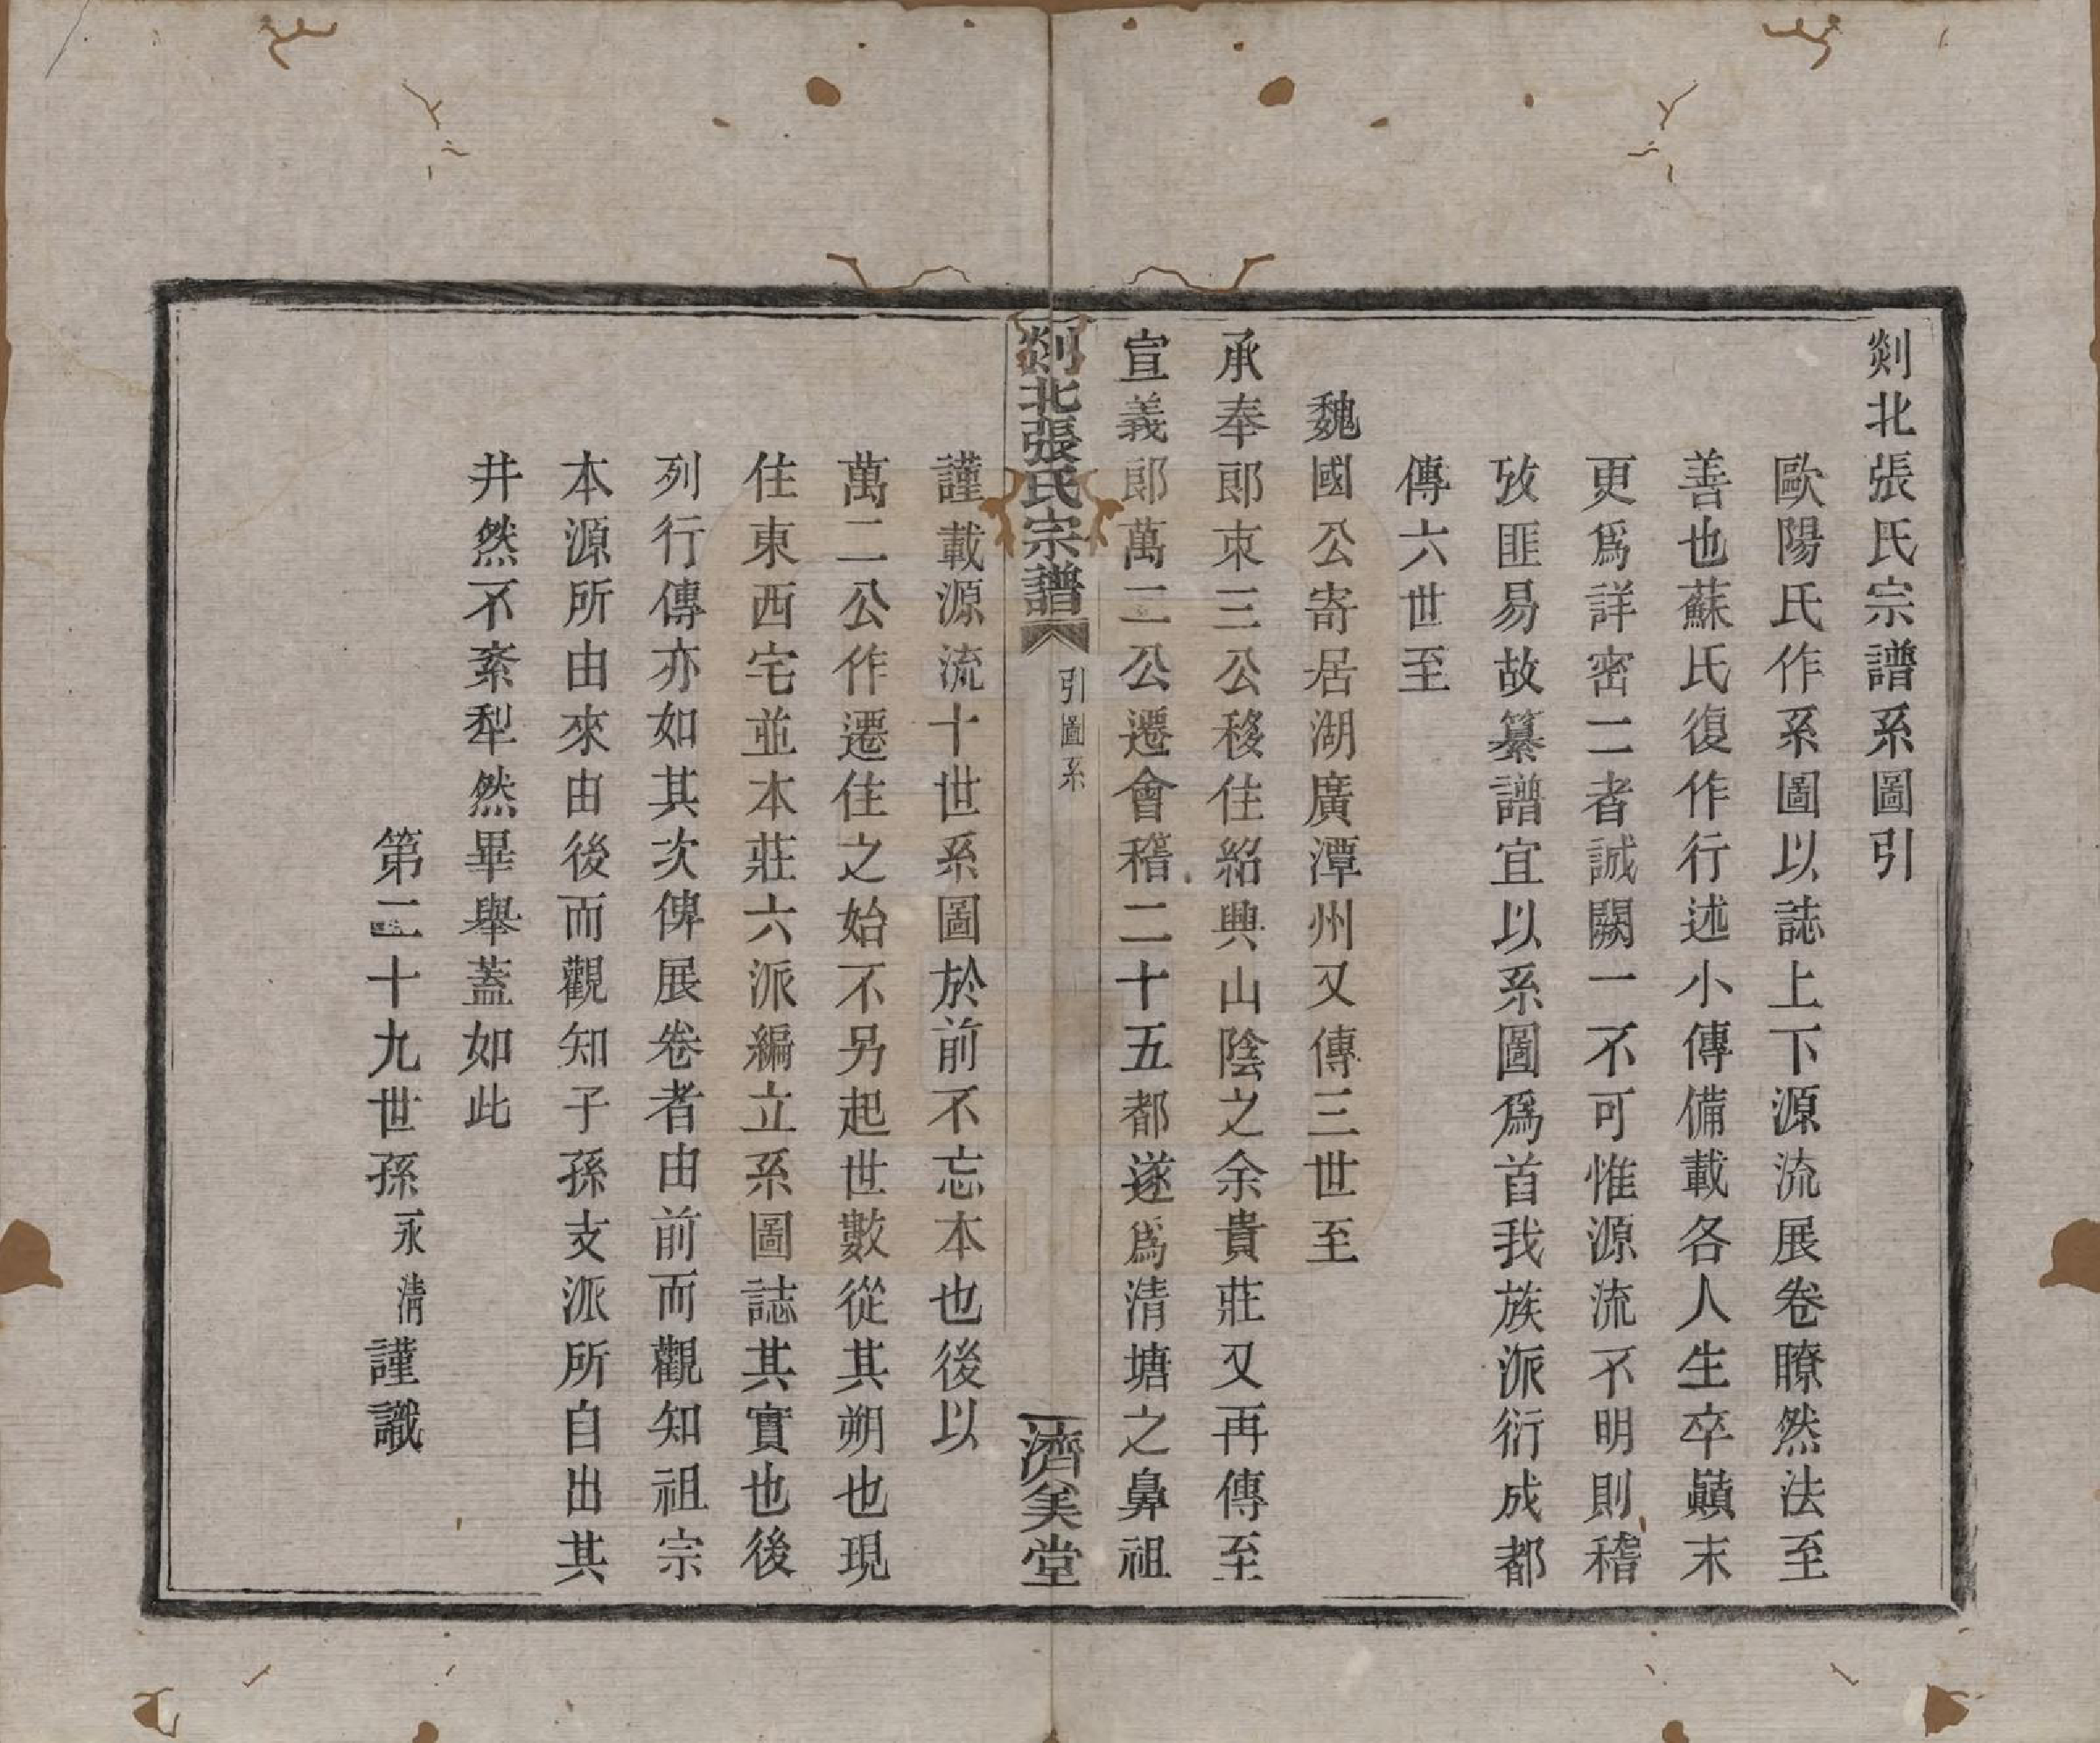 剡北張氏宗譜系圖引
歐陽氏作系圖以誌上下源流展卷瞭然法至
善也蘇氏復作行述小傳備載各人生卒巔末
更爲詳密二者誠闕一不可惟源流不明則稽
攷匪易故纂譜宜以系圖爲首我族派衍成都
傳六世至
魏國公寄居湖廣潭州又傳三世至
承奉郎朿三公移住紹興山陰之余貴莊又再傳至
宣義郎萬二公遷會稽二十五都遂爲清塘之鼻祖
剡北張氏宗譜
引圖系
濟美堂
謹載源流十世系圖於前不忘本也後以
萬二公作遷住之始不另起世數從其朔也現
住東西宅並本莊六派編立系圖誌其實也後
列行傳亦如其次俾展卷者由前而觀知祖宗
本源所由來由後而觀知子孫支派所自出其
井然不紊犁然畢舉蓋如此
第二十九世孫永清謹識